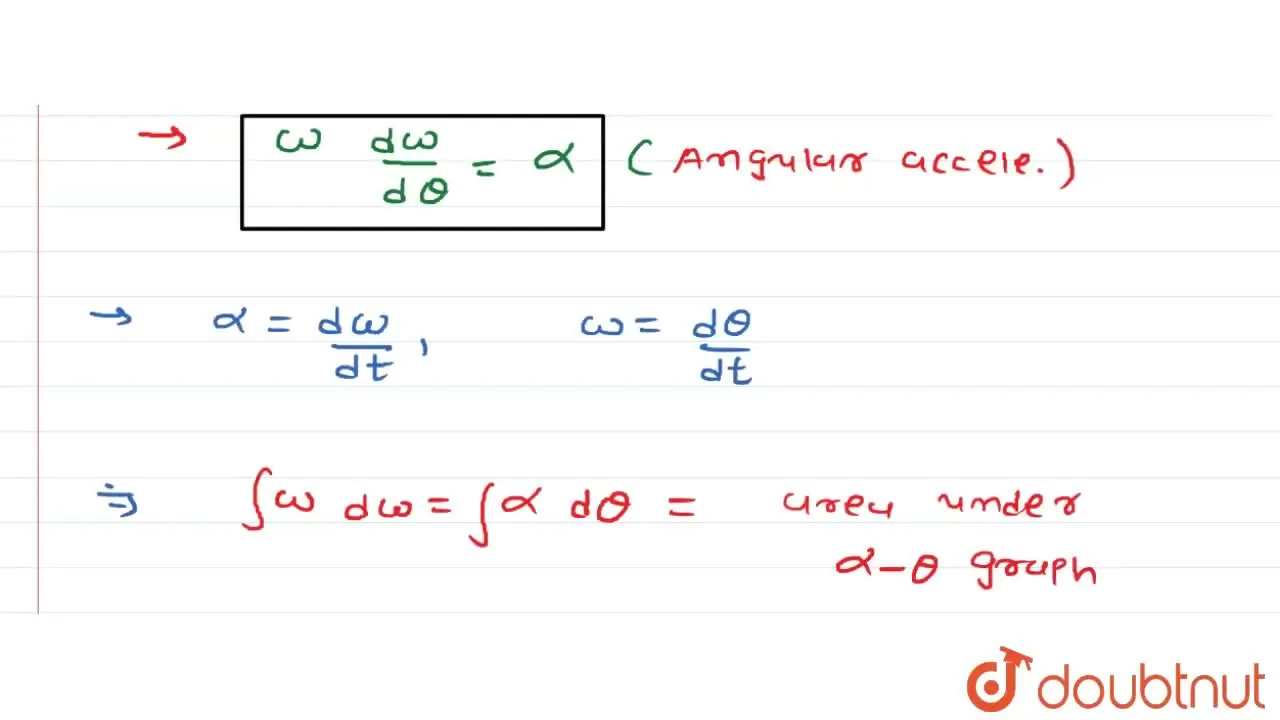 → ω dω/dθ = α (Angular accele.)
→ α = dω/dt, ω = dθ/dt
⇒ ∫ω dω = ∫α dθ = area under
α-θ graph
doubtnut